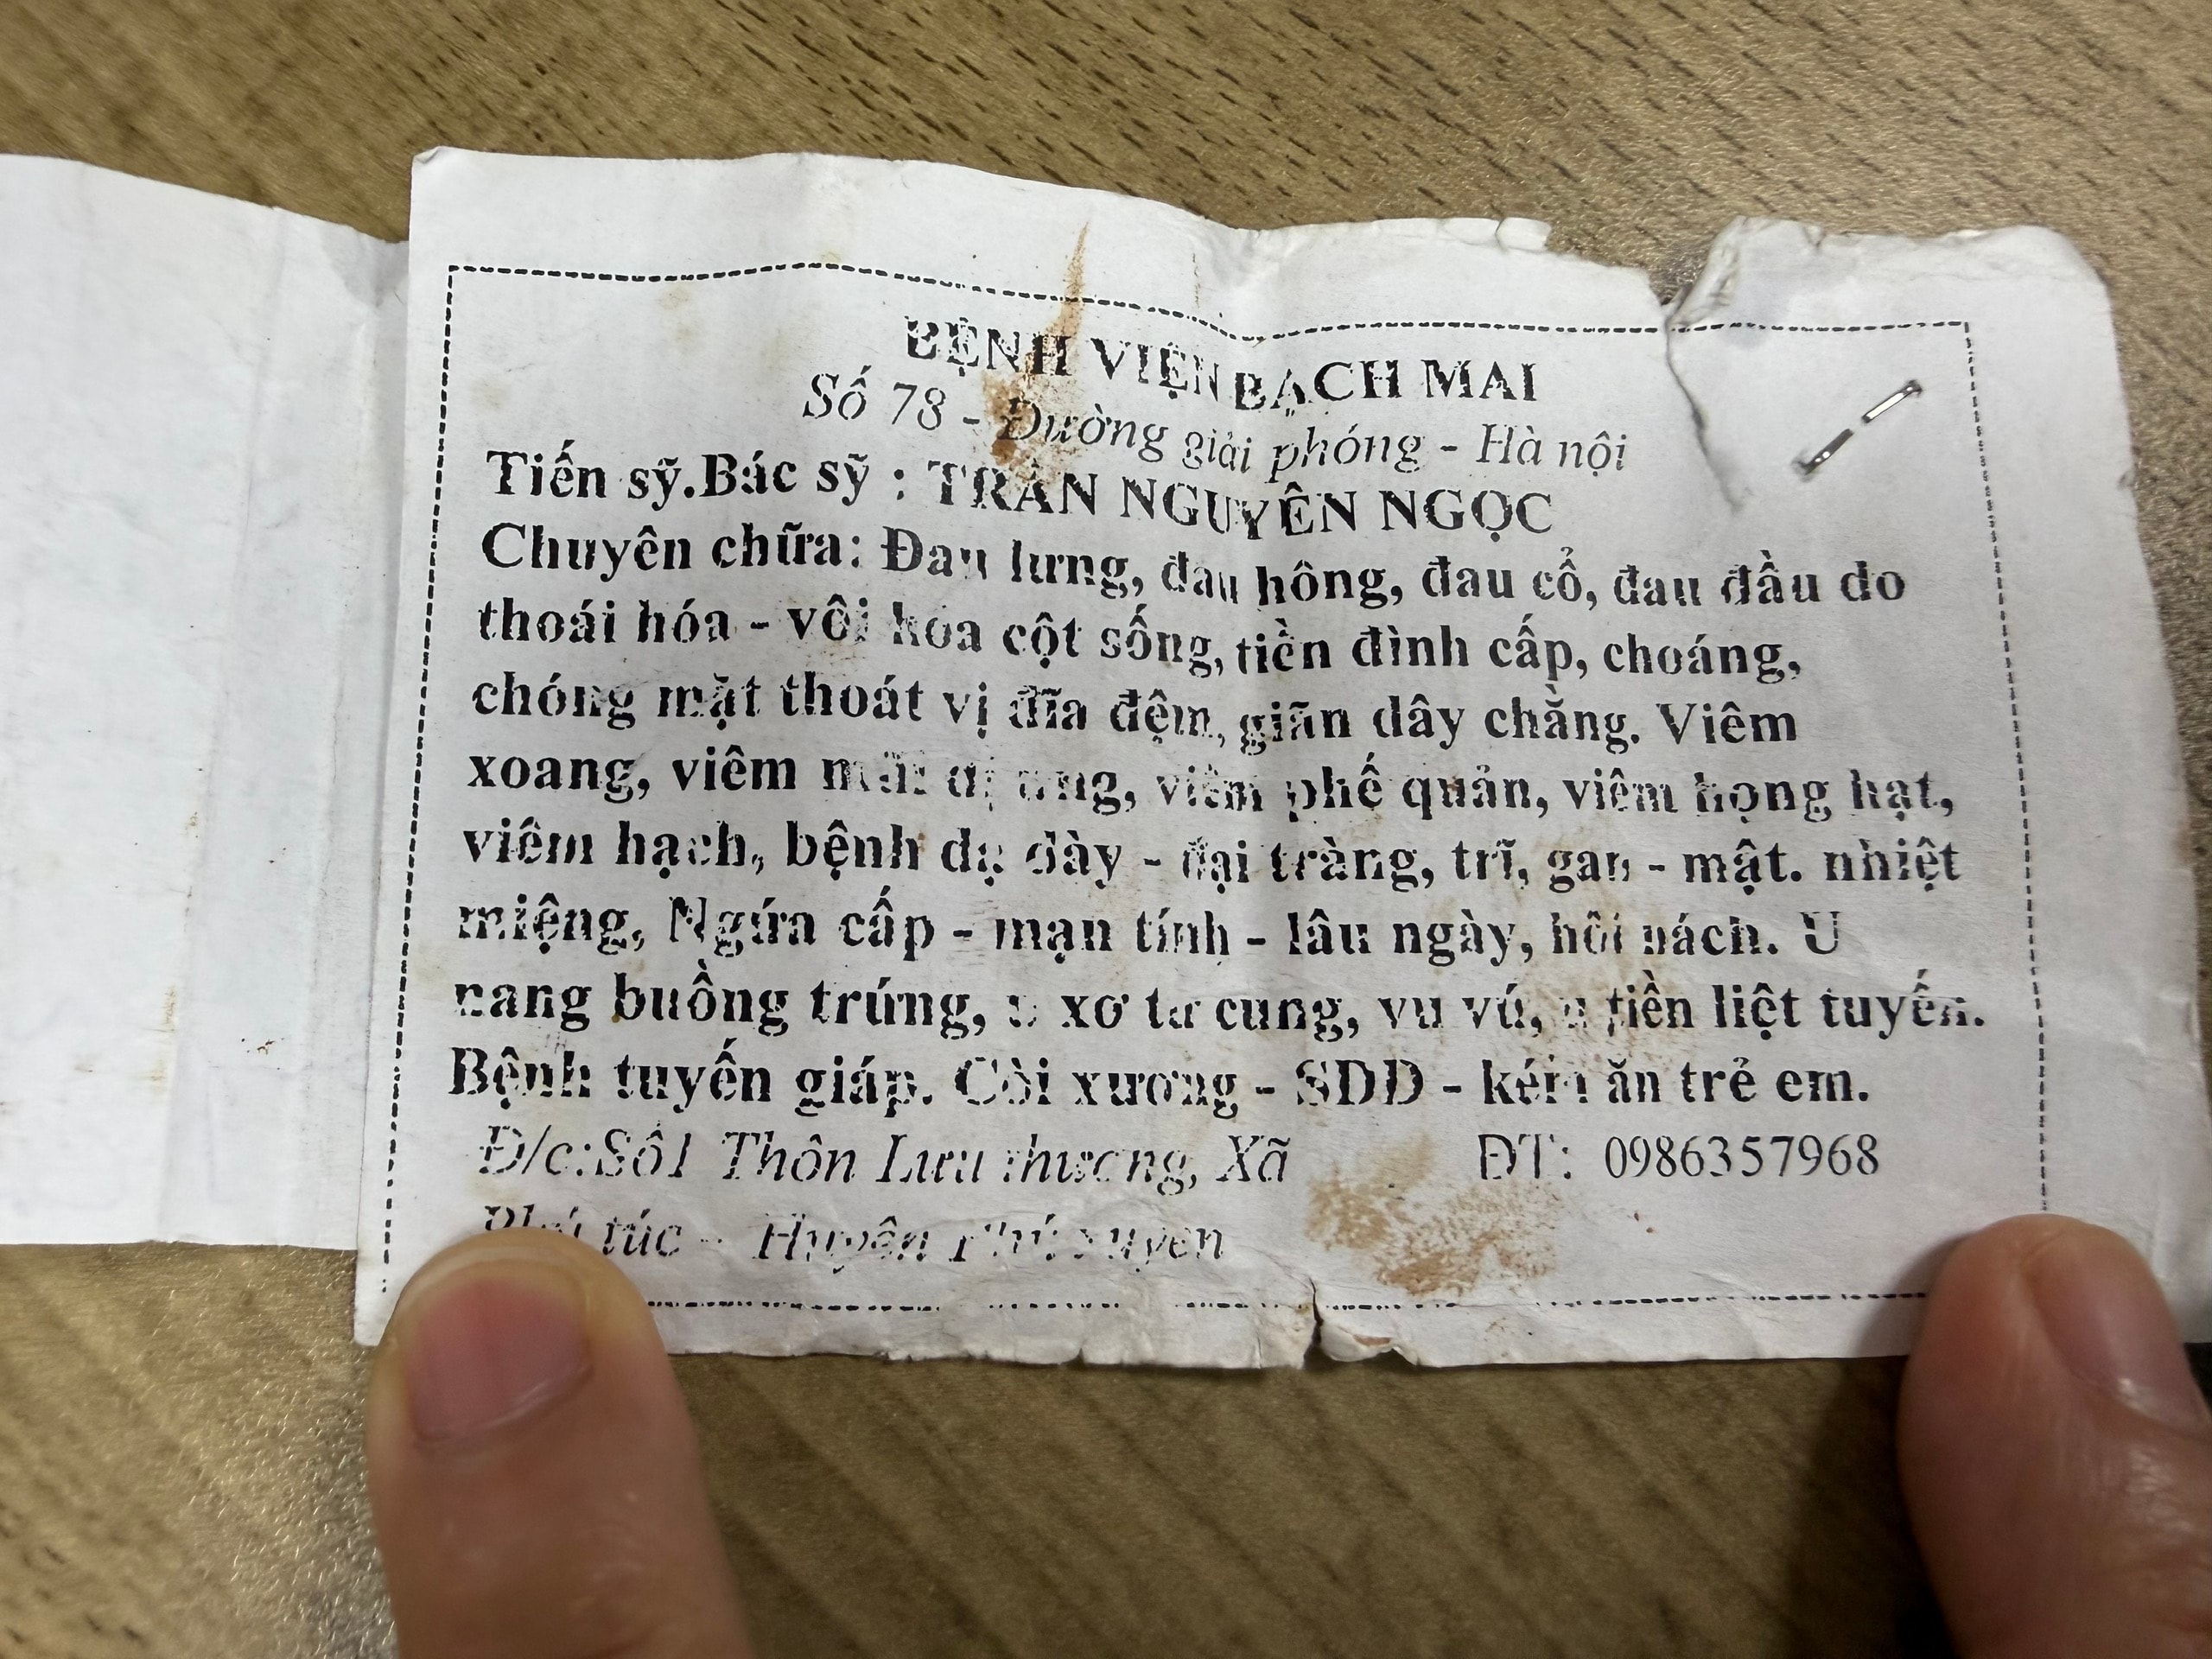 BỆNH VIỆN BẠCH MAI
Số 78 - Đường giải phóng - Hà nội
Tiến sỹ.Bác sỹ : TRẦN NGUYÊN NGỌC
Chuyên chữa: Đau lưng, đau hông, đau cổ, đau đầu do
thoái hóa - vôi hóa cột sống, tiền đình cấp, choáng,
chóng mặt thoát vị đĩa đệm, giãn dây chằng. Viêm
xoang, viêm mũi dị ứng, viêm phế quản, viêm họng hạt,
viêm hạch, bệnh dạ dày - đại tràng, trĩ, gan - mật. nhiệt
miệng, Ngứa cấp - mạn tính - lâu ngày, hôi nách. U
nang buồng trứng, u xơ tử cung, vu vú, u tiền liệt tuyến.
Bệnh tuyến giáp. Còi xương - SDD - kém ăn trẻ em.
Đ/c:Số1 Thôn Lưu thượng, Xã ĐT: 0986357968
Phú túc - Huyện Phú xuyên